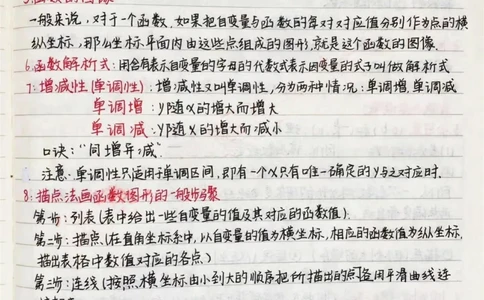 一般来说，对于一个函数，如果把自变量与函数的每对对应值分别作为点的横
纵坐标，那么坐标平面内由这些点组成的图形，就是这个函数的图像.
6.函数解析式：用含有表示自变量的字母的代数式表示因变量的式子叫做解析式
7.增减性(单调性)：增减性又叫单调性，分为两种情况：单调增，单调减
单调增：y随x的增大而增大
单调减：y随x的增大而减小
口诀：“同增异减”
注意：单调性只适用于单调区间，即有一个x只有唯一确定的y与之对应时.
8.描点法画函数图形的一般步骤
第一步：列表(表中给出一些自变量的值及其对应的函数值)
第二步：描点(在直角坐标系中，以自变量的值为横坐标，相应的函数值为纵坐标，
描出表格中数值对应的各点)
第三步：连线(按照横坐标由小到大的顺序把所描出的点用平滑曲线连